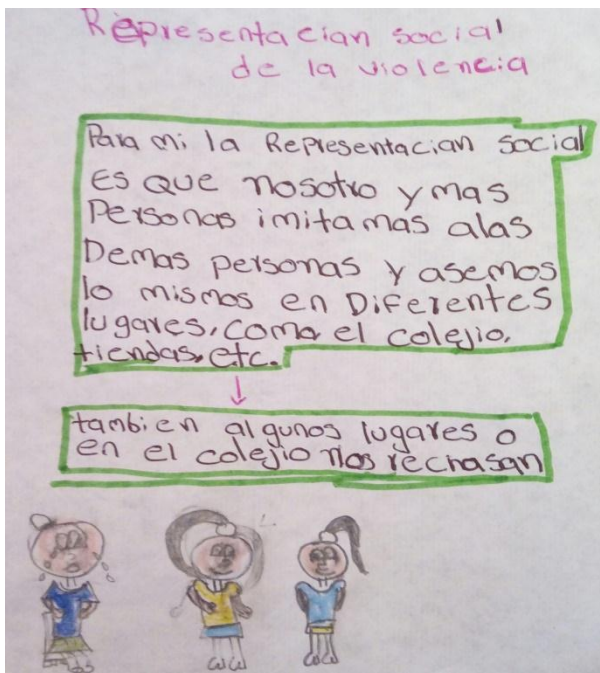 Representacian social
de la violencia
Para mi la Representacian social
Es que nosotro y mas
Personas imitamas alas
Demas personas y asemos
lo mismos en Diferentes
lugares, como el colejio,
tiendas, etc.
tambien algunos lugares o
en el colejio nos rechasan